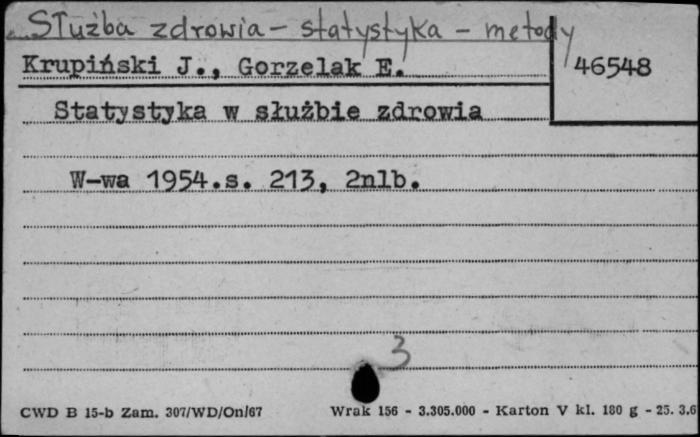 Służba zdrowia - statystyka - metody
Krupiński J., Gorzelak E.
46548
Statystyka w służbie zdrowia
W-wa 1954.s. 213, 2nlb.
3
CWD B 15-b Zam. 307/WD/On/67
Wrak 156 - 3.305.000 - Karton V kl. 180 g - 25. 3.6